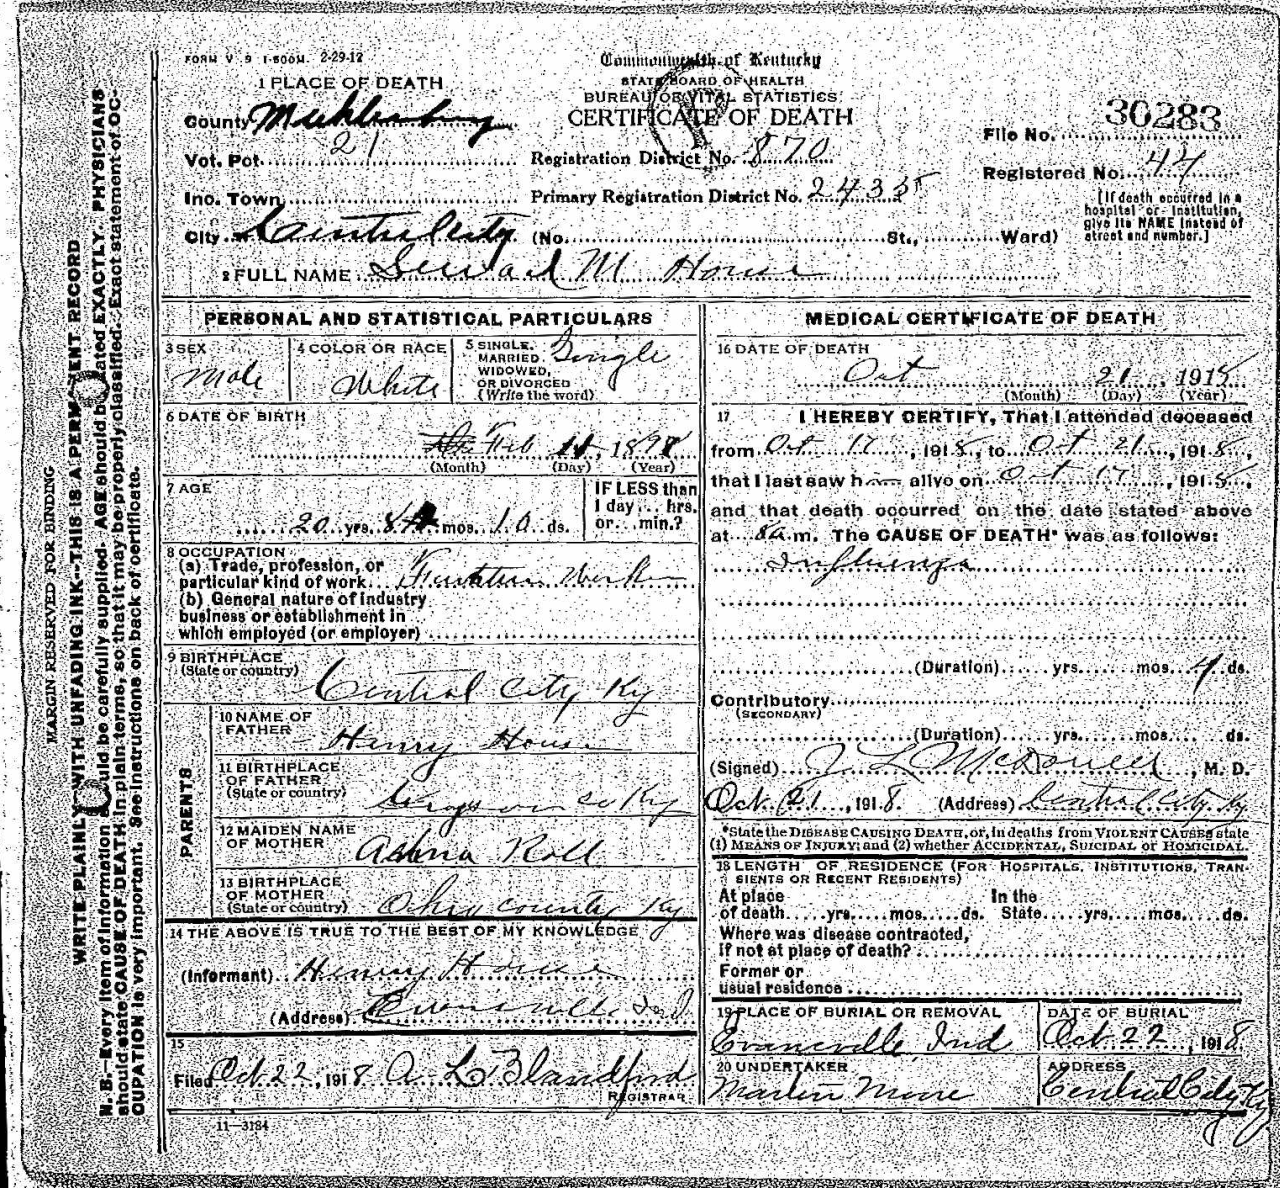 FORM V. S 1-500M. 2-29-12
Commonwealth of Kentucky
STATE BOARD OF HEALTH
BUREAU OF VITAL STATISTICS
CERTIFICATE OF DEATH
1 PLACE OF DEATH
County Muhlenberg
Vot. Pct. 21
Inc. Town
City Central City (No. St., Ward)
Registration District No. 870
Primary Registration District No. 2435
File No. 30283
Registered No. 44
[If death occurred in a hospital or institution, give its NAME instead of street and number.]
2 FULL NAME M House
PERSONAL AND STATISTICAL PARTICULARS
3 SEX
Male
4 COLOR OR RACE
White
5 SINGLE, MARRIED, WIDOWED, OR DIVORCED (Write the word)
Single
6 DATE OF BIRTH
Feb 11, 1898
(Month) (Day) (Year)
7 AGE
20 yrs. 8 mos. 10 ds.
IF LESS than 1 day... hrs. or... min.?
8 OCCUPATION
(a) Trade, profession, or particular kind of work Worker
(b) General nature of industry business or establishment in which employed (or employer)
9 BIRTHPLACE
(State or country)
Central City Ky
PARENTS
10 NAME OF FATHER
Henry House
11 BIRTHPLACE OF FATHER
(State or country)
Co Ky
12 MAIDEN NAME OF MOTHER
Roll
13 BIRTHPLACE OF MOTHER
(State or country)
Ohio County Ky
14 THE ABOVE IS TRUE TO THE BEST OF MY KNOWLEDGE
(Informant) Henry House
(Address) Evansville Ind
15
Filed Oct 22, 1918 A. L. Blandford
REGISTRAR
11-3184
MEDICAL CERTIFICATE OF DEATH
16 DATE OF DEATH
Oct 21, 1918
(Month) (Day) (Year)
17 I HEREBY CERTIFY, That I attended deceased
from Oct 17, 1918, to Oct 21, 1918,
that I last saw h alive on Oct 17, 1918,
and that death occurred on the date stated above
at 8 a.m. The CAUSE OF DEATH* was as follows:
Influenza
(Duration) yrs. mos. 4 ds.
Contributory
(SECONDARY)
(Duration) yrs. mos. ds.
(Signed) J L McDowell, M. D.
Oct. 21, 1918. (Address) Central City Ky
*State the DISEASE CAUSING DEATH, or, in deaths from VIOLENT CAUSES state
(1) MEANS OF INJURY; and (2) whether ACCIDENTAL, SUICIDAL or HOMICIDAL.
18 LENGTH OF RESIDENCE (FOR HOSPITALS, INSTITUTIONS, TRANSIENTS OR RECENT RESIDENTS)
At place of death yrs. mos. ds. In the State yrs. mos. ds.
Where was disease contracted,
if not at place of death?
Former or
usual residence
19 PLACE OF BURIAL OR REMOVAL
Evansville Ind
DATE OF BURIAL
Oct 22, 1918
20 UNDERTAKER
Martin Moore
ADDRESS
Central City Ky
MARGIN RESERVED FOR BINDING
WRITE PLAINLY WITH UNFADING INK--THIS IS A PERMANENT RECORD
N. B.--Every item of information should be carefully supplied. AGE should be stated EXACTLY. PHYSICIANS
should state CAUSE OF DEATH in plain terms, so that it may be properly classified. Exact statement of OC-
CUPATION is very important. See instructions on back of certificate.